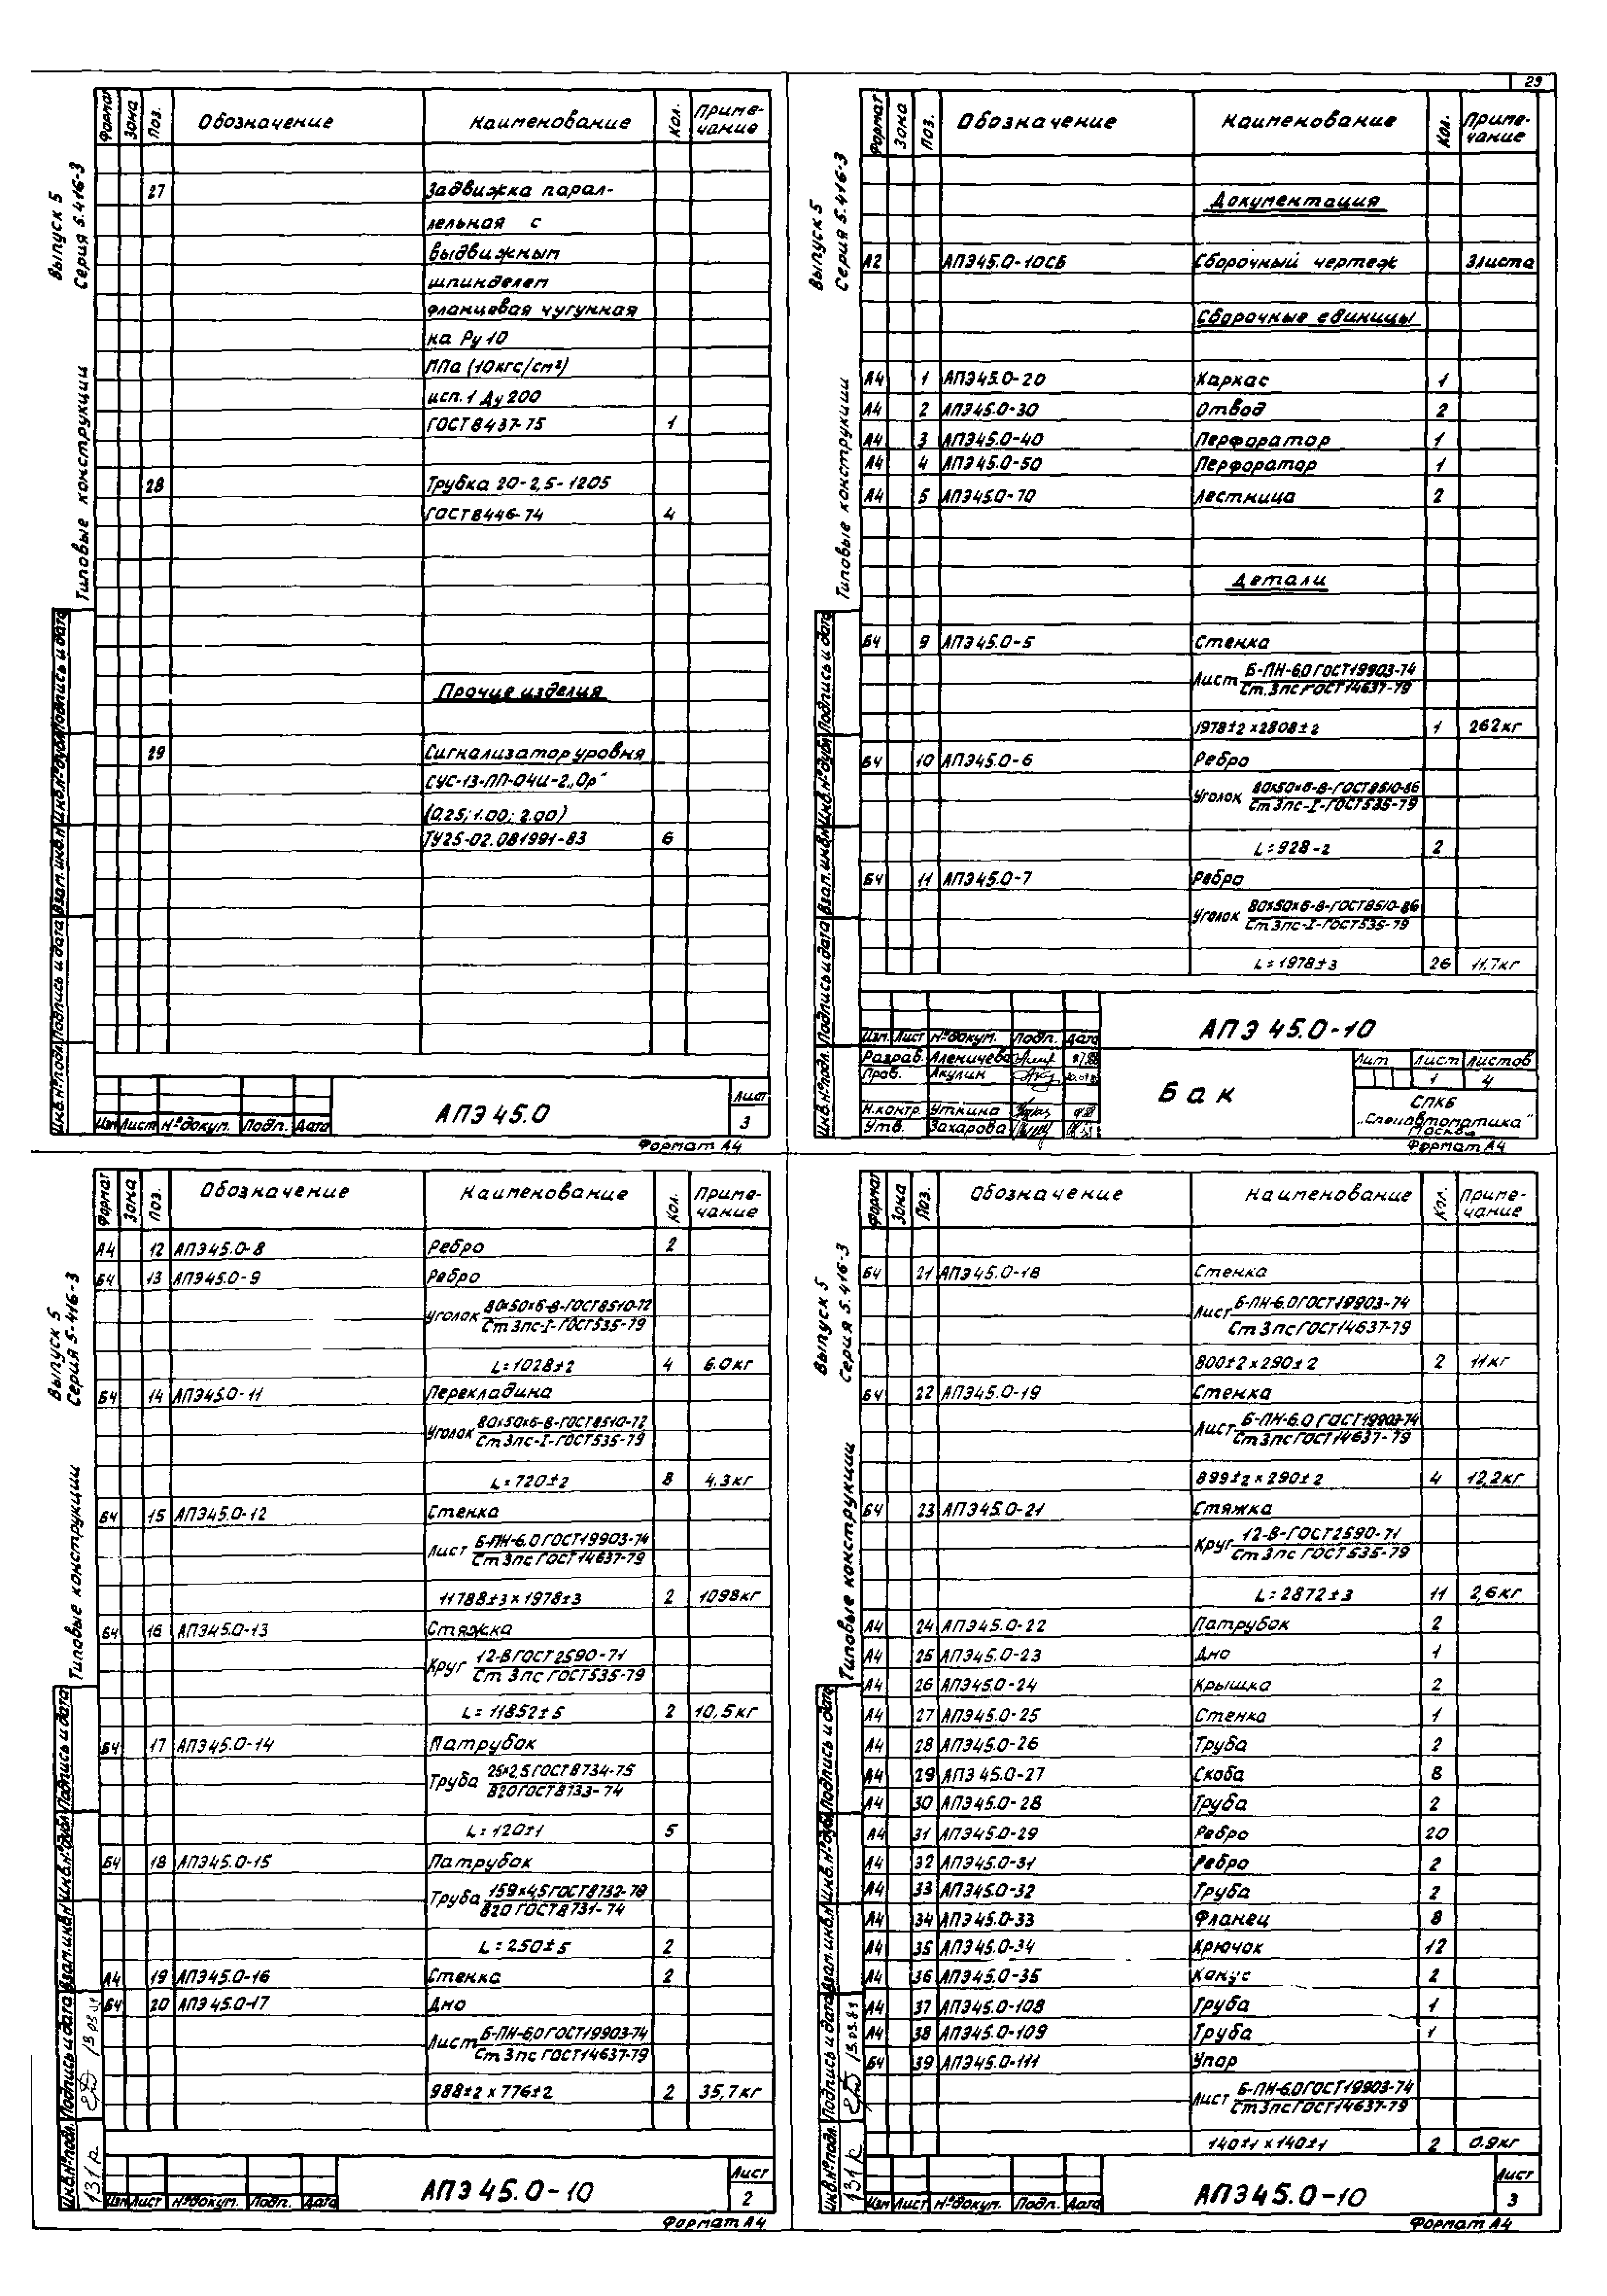 29
Выпуск 5
Серия 5.416-3
Типовые конструкции
Формат Зона Поз. Обозначение Наименование Кол. Приме-
чание
27 Задвижка парал-
лельная с
выдвижным
шпинделем
фланцевая чугунная
на Ру 10
МПа (10кгс/см²)
исп. 1 Ду 200
ГОСТ 8437-75 1
28 Трубка 20-2,5-1205
ГОСТ 8446-74 4
Прочие изделия
29 Сигнализатор уровня
СУС-13-ПП-04И-2„Ор"
(0.25; 1.00; 2.00)
ТУ25-02.081991-83 6
Инв.№подл. Подпись и дата Взам.инв.№ Инв.№дубл. Подпись и дата
Изм Лист №докум. Подп. Дата
АПЭ 45.0
Лист
3
Формат А4
Выпуск 5
Серия 5.416-3
Типовые конструкции
Формат Зона Поз. Обозначение Наименование Кол. Приме-
чание
Документация
А2 АПЭ45.0-10СБ Сборочный чертеж 3листа
Сборочные единицы
А4 1 АПЭ45.0-20 Каркас 1
А4 2 АПЭ45.0-30 Отвод 2
А4 3 АПЭ45.0-40 Перфоратор 1
А4 4 АПЭ45.0-50 Перфоратор 1
А4 5 АПЭ45.0-70 Лестница 2
Детали
БЧ 9 АПЭ45.0-5 Стенка
Лист Б-ПН-6.0 ГОСТ19903-74
Ст.3пс ГОСТ14637-79
1978±2 х2808±2 1 262кг
БЧ 10 АПЭ45.0-6 Ребро
Уголок 80х50х6-В-ГОСТ8510-86
Ст3пс-I-ГОСТ535-79
L=928-2 2
БЧ 11 АПЭ45.0-7 Ребро
Уголок 80х50х6-В-ГОСТ8510-86
Ст3пс-I-ГОСТ535-79
L=1978±3 26 11,7кг
Инв.№подл. Подпись и дата Взам.инв.№ Инв.№дубл. Подпись и дата
Изм. Лист №докум. Подп. Дата
Разраб. Аленичева
Пров. Акулин
Н.контр. Уткина
Утв. Захарова
АПЭ 45.0-10
Бак
Лит Лист Листов
1 4
СПКБ
„Спецавтоматика"
Москва
Формат А4
Выпуск 5
Серия 5.416-3
Типовые конструкции
Формат Зона Поз. Обозначение Наименование Кол. Приме-
чание
А4 12 АПЭ45.0-8 Ребро 2
БЧ 13 АПЭ45.0-9 Ребро
Уголок 80х50х6-В-ГОСТ8510-72
Ст3пс-I-ГОСТ535-79
L=1028±2 4 6.0кг
БЧ 14 АПЭ45.0-11 Перекладина
Уголок 80х50х6-В-ГОСТ8510-72
Ст3пс-I-ГОСТ535-79
L=720±2 8 4.3кг
БЧ 15 АПЭ45.0-12 Стенка
Лист Б-ПН-6.0 ГОСТ19903-74
Ст3пс ГОСТ14637-79
11788±3 х 1978±3 2 1098кг
БЧ 16 АПЭ45.0-13 Стяжка
Круг 12-В ГОСТ2590-71
Ст 3пс ГОСТ535-79
L=11852±5 2 10,5кг
БЧ 17 АПЭ45.0-14 Патрубок
Труба 25х2,5 ГОСТ8734-75
В20 ГОСТ8733-74
L=120±1 5
БЧ 18 АПЭ45.0-15 Патрубок
Труба 159х4,5 ГОСТ8732-78
В20 ГОСТ8731-74
L=250±5 2
А4 19 АПЭ45.0-16 Стенка 2
БЧ 20 АПЭ45.0-17 Дно
Лист Б-ПН-6,0 ГОСТ19903-74
Ст 3пс ГОСТ14637-79
988±2 х 776±2 2 35,7кг
Инв.№подл. Подпись и дата Взам.инв.№ Инв.№дубл. Подпись и дата
131р
Изм Лист №докум. Подп. Дата
АПЭ 45.0-10
Лист
2
Формат А4
Выпуск 5
Серия 5.416-3
Типовые конструкции
Формат Зона Поз. Обозначение Наименование Кол. Приме-
чание
БЧ 21 АПЭ45.0-18 Стенка
Лист Б-ПН-6.0 ГОСТ19903-74
Ст 3пс ГОСТ14637-79
800±2 х 290±2 2 11кг
БЧ 22 АПЭ45.0-19 Стенка
Лист Б-ПН-6.0 ГОСТ19903-74
Ст3пс ГОСТ14637-79
899±2 х 290±2 4 12,2кг
БЧ 23 АПЭ45.0-21 Стяжка
Круг 12-В-ГОСТ2590-71
Ст3пс ГОСТ535-79
L=2872±3 11 2,6кг
А4 24 АПЭ45.0-22 Патрубок 2
А4 25 АПЭ45.0-23 Дно 1
А4 26 АПЭ45.0-24 Крышка 2
А4 27 АПЭ45.0-25 Стенка 1
А4 28 АПЭ45.0-26 Труба 2
А4 29 АПЭ 45.0-27 Скоба 8
А4 30 АПЭ45.0-28 Труба 2
А4 31 АПЭ45.0-29 Ребро 20
А4 32 АПЭ45.0-31 Ребро 2
А4 33 АПЭ45.0-32 Труба 2
А4 34 АПЭ45.0-33 Фланец 8
А4 35 АПЭ45.0-34 Крючок 12
А4 36 АПЭ45.0-35 Конус 2
А4 37 АПЭ45.0-108 Труба 1
А4 38 АПЭ45.0-109 Труба 1
БЧ 39 АПЭ45.0-111 Упор
Лист Б-ПН-6.0 ГОСТ19903-74
Ст3пс ГОСТ14637-79
140±1 х 140±1 2 0.9кг
Инв.№подл. Подпись и дата Взам.инв.№ Инв.№дубл. Подпись и дата
131р
Изм Лист №докум. Подп. Дата
АПЭ45.0-10
Лист
3
Формат А4